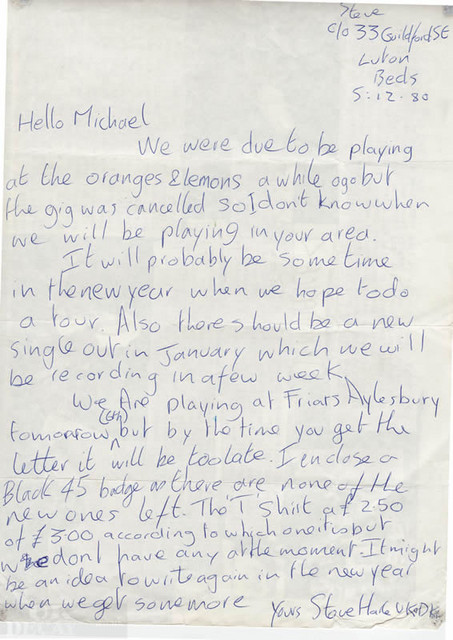 Steve
c/o 33 Guildford St
Luton
Beds
5.12.80
Hello Michael
We were due to be playing
at the oranges & lemons a while ago but
the gig was cancelled so I don't know when
we will be playing in your area.
It will probably be some time
in the new year when we hope to do
a tour. Also there should be a new
single out in January which we will
be recording in a few week
We Are playing at Friars Aylesbury
tomorrow (6th) but by the time you get the
letter it will be too late. I enclose a
Black 45 badge as there are none of the
new ones left. The 'T' Shirt a £2.50
of £3.00 according to which one it is but
we don't have any at the moment. It might
be an idea to write again in the new year
when we get some more Yours Steve UK Dk